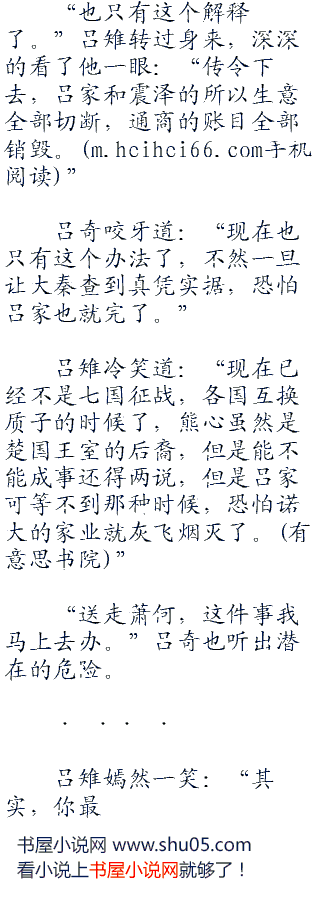 “也只有这个解释
了。”吕雉转过身来，深深
的看了他一眼：“传令下
去，吕家和震泽的所以生意
全部切断，通商的账目全部
销毁。(m.hcihci66.com手机
阅读)”
吕奇咬牙道：“现在也
只有这个办法了，不然一旦
让大秦查到真凭实据，恐怕
吕家也就完了。”
吕雉冷笑道：“现在已
经不是七国征战，各国互换
质子的时候了，熊心虽然是
楚国王室的后裔，但是能不
能成事还得两说，但是吕家
可等不到那种时候，恐怕诺
大的家业就灰飞烟灭了。(有
意思书院)”
“送走萧何，这件事我
马上去办。”吕奇也听出潜
在的危险。
．．．．
吕雉嫣然一笑：“其
实，你最
书屋小说网 www.shu05.com
看小说上书屋小说网就够了！